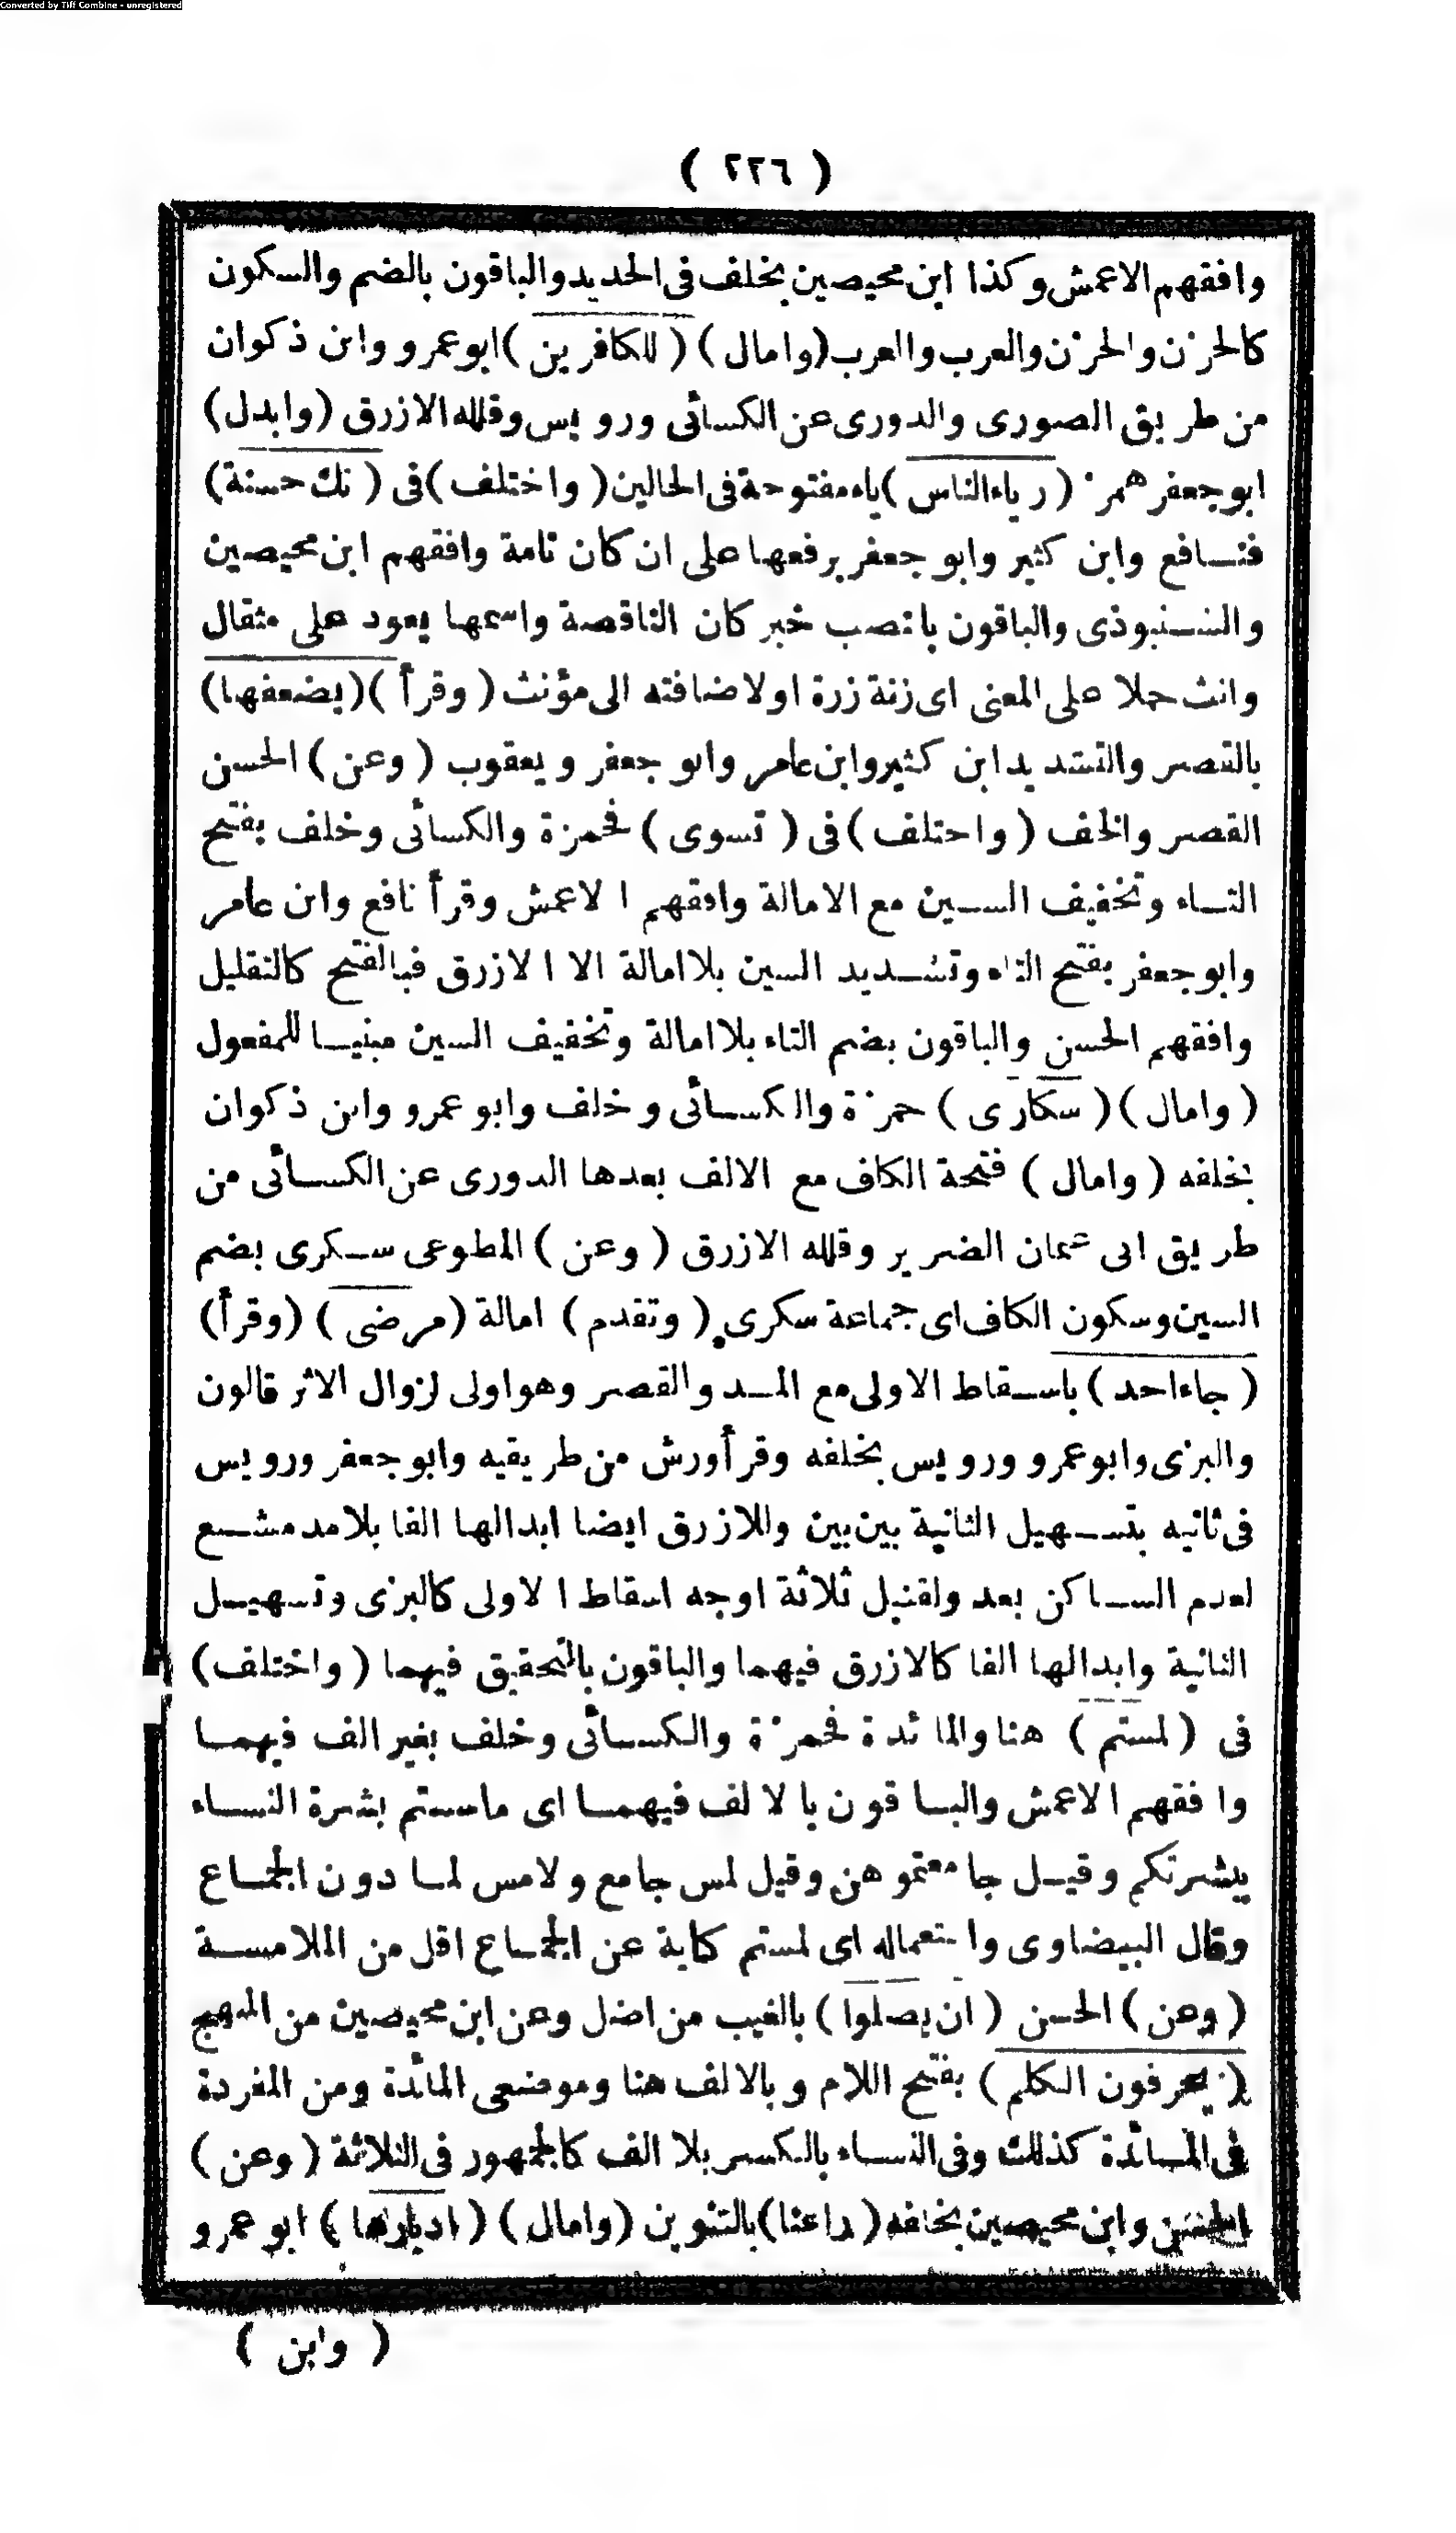 Converted by Tiff Combine - unregistered
( ٢٢٦ )
وافقهم الاعمش وكذا ابن محيصين بخلف فى الحديد والباقون بالضم والسكون
كالحزن والحزن والعرب والعرب (وامال) (للكافرين) ابو عمرو وابن ذكوان
من طريق الصورى والدورى عن الكسائى ورويس وقلله الازرق (وابدل)
ابو جعفر همز (رياء الناس) ياء مفتوحة فى الحالين (واختلف) فى (تك حسنة)
فنافع وابن كثير وابو جعفر برفعها على ان كان تامة وافقهم ابن محيصين
والشنبوذى والباقون بالنصب خبر كان الناقصة واسمها يعود على مثقال
وانث حملا على المعنى اى زنة زرة اولاضافته الى مؤنث (وقرأ) (يضعفها)
بالقصر والتشديد ابن كثير وابن عامر وابو جعفر ويعقوب (وعن) الحسن
القصر والخف (واختلف) فى (تسوى) فحمزة والكسائى وخلف بفتح
التاء وتخفيف السين مع الامالة وافقهم الاعمش وقرأ نافع وابن عامر
وابو جعفر بفتح التاء وتشديد السين بلا امالة الا الازرق فبالفتح كالتقليل
وافقهم الحسن والباقون بضم التاء بلا امالة وتخفيف السين مبنيا للمفعول
(وامال) (سكارى) حمزة والكسائى وخلف وابو عمرو وابن ذكوان
بخلفه (وامال) فتحة الكاف مع الالف بعدها الدورى عن الكسائى من
طريق ابى عثمان الضرير وقلله الازرق (وعن) المطوعى سكرى بضم
السين وسكون الكاف اى جماعة سكرى (وتقدم) امالة (مرضى) (وقرأ)
(جاء احد) باسقاط الاولى مع المد والقصر وهو اولى لزوال الاثر قالون
والبزى وابو عمرو ورويس بخلفه وقرأ ورش من طريقيه وابو جعفر ورويس
فى ثانيه بتسهيل الثانية بين بين وللازرق ايضا ابدالها الفا بلا مد مشبع
لعدم الساكن بعد ولقنبل ثلاثة اوجه اسقاط الاولى كالبزى وتسهيل
الثانية وابدالها الفا كالازرق فيهما والباقون بالتحقيق فيهما (واختلف)
فى (لمستم) هنا والمائدة فحمزة والكسائى وخلف بغير الف فيهما
وافقهم الاعمش والباقون بالالف فيهما اى ماسستم بشرة النساء
ببشرتكم وقيل جامعتموهن وقيل لمس جامع ولامس لما دون الجماع
وقال البيضاوى واستعماله اى لمستم كناية عن الجماع اقل من الملامسة
(وعن) الحسن (ان يضلوا) بالغيب من اضل وعن ابن محيصين من المبهج
(يحرفون الكلم) بفتح اللام وبالالف هنا وموضعى المائدة ومن المفردة
فى المائدة كذلك وفى النساء بالكسر بلا الف كالجمهور فى الثلاثة (وعن)
الحسن وابن محيصين بخلفه (راعنا) بالتنوين (وامال) (ادبارها) ابو عمرو
( وابن )